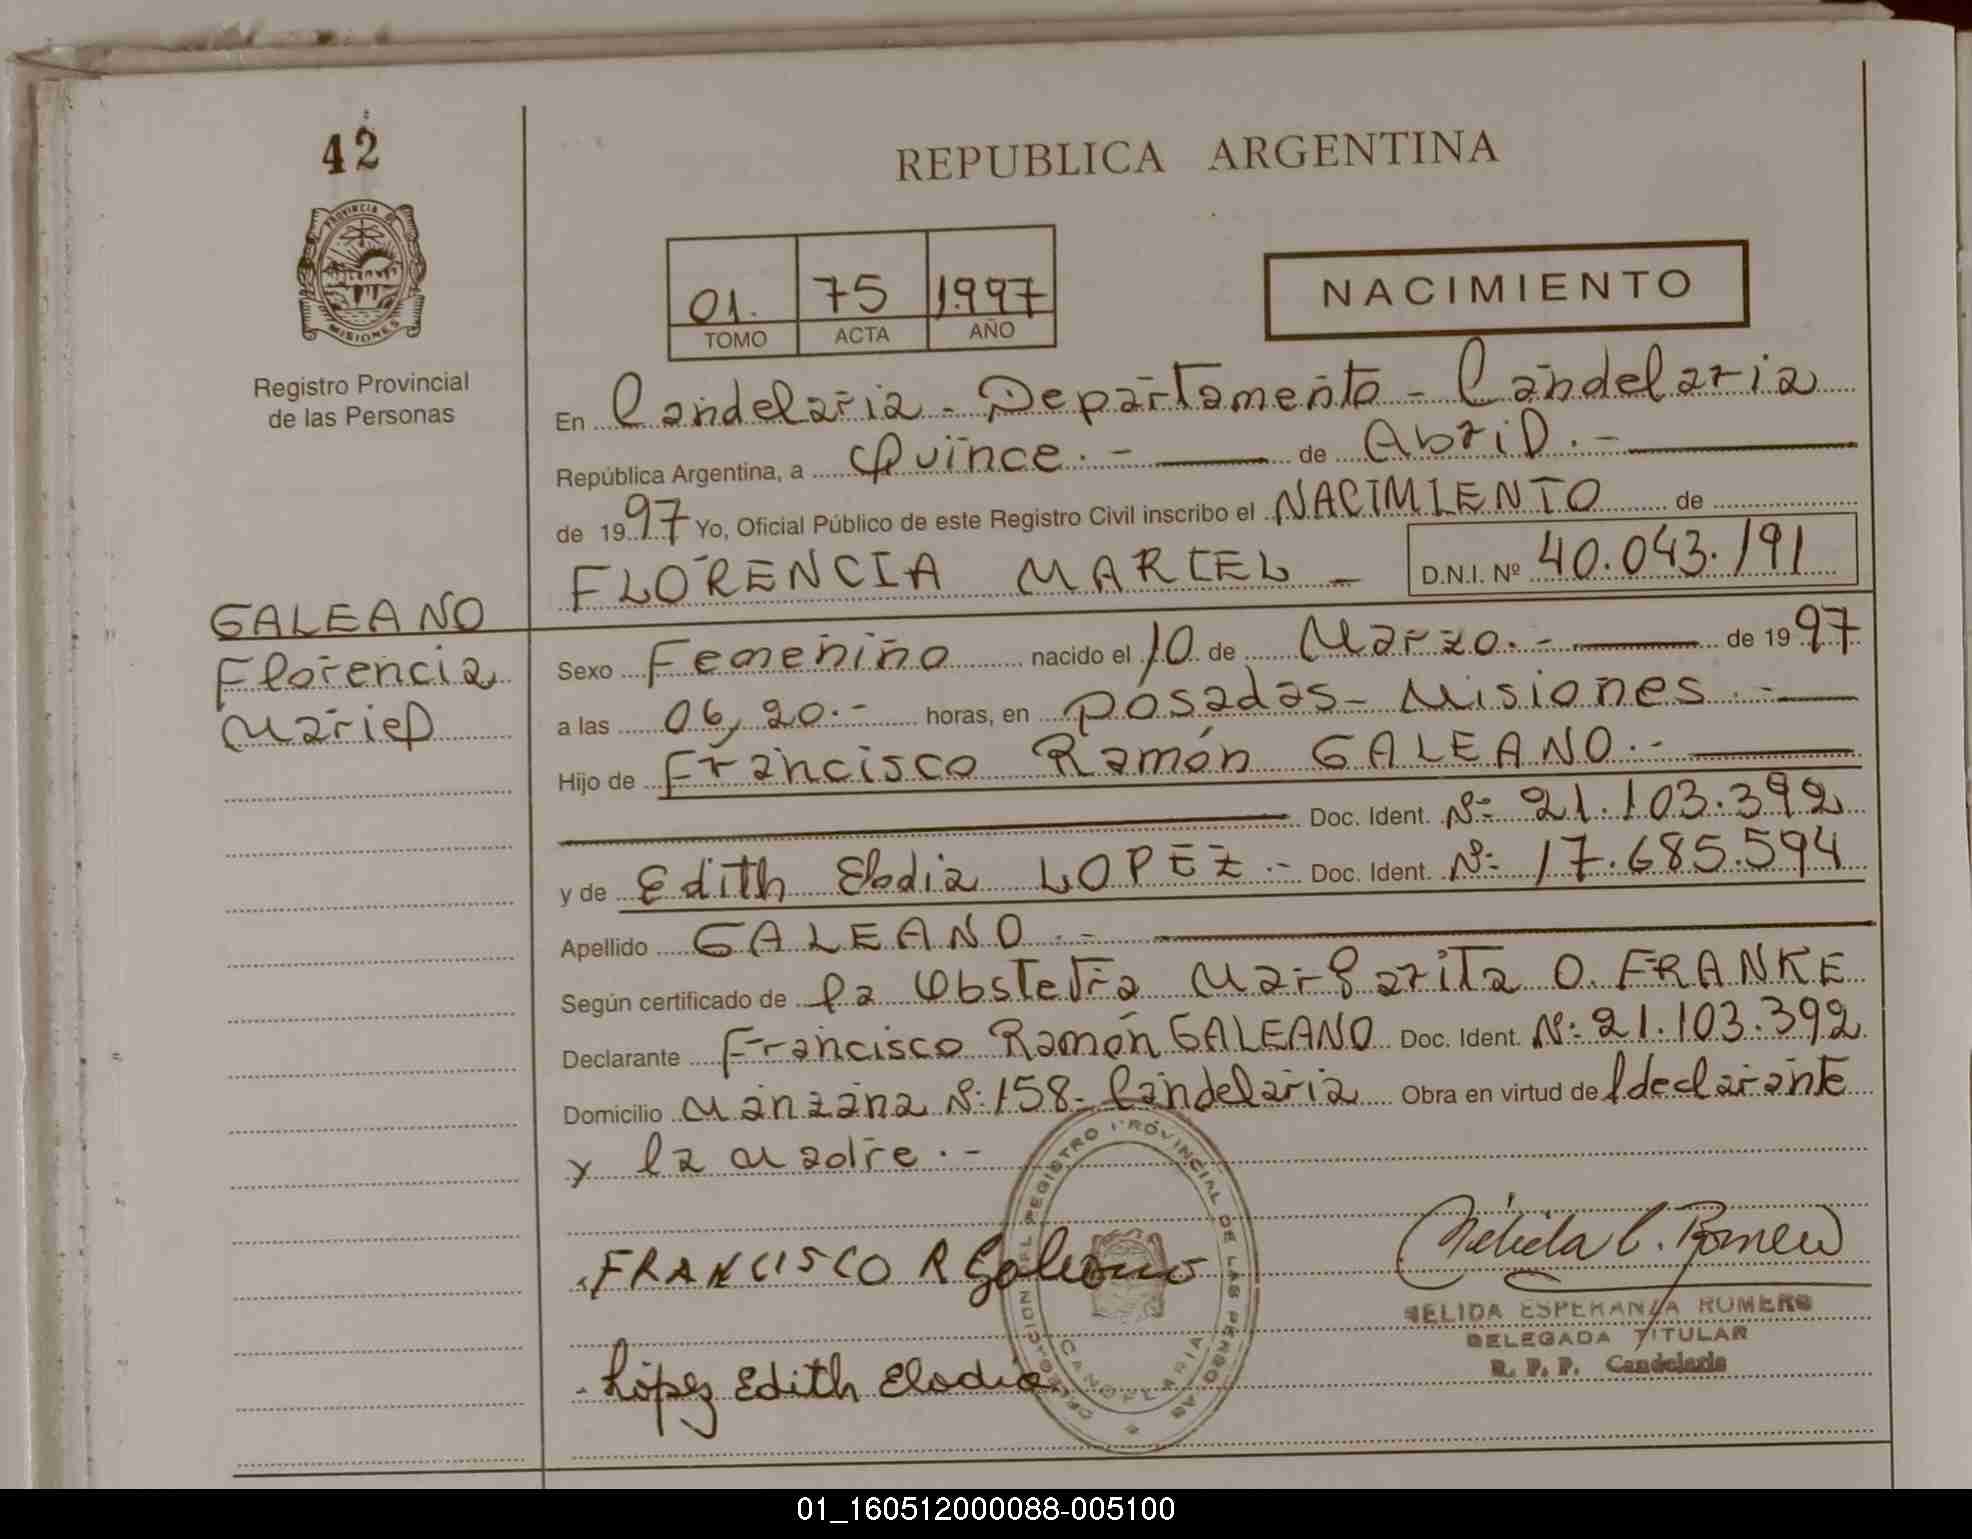 42
PROVINCIA DE
MISIONES
Registro Provincial
de las Personas
GALEANO
Florencia
Mariel
REPUBLICA ARGENTINA
01. 75 1.997
TOMO ACTA AÑO
NACIMIENTO
En Candelaria - Departamento - Candelaria
República Argentina, a Quince.- de Abril.-
de 1997 Yo, Oficial Público de este Registro Civil inscribo el NACIMIENTO de
FLORENCIA MARIEL - D.N.I. Nº 40.043.191
Sexo Femenino nacido el 10 de Marzo.- de 1997
a las 06,20.- horas, en Posadas - Misiones.-
Hijo de Francisco Ramón GALEANO.-
Doc. Ident. Nº 21.103.392
y de Edith Elodia LOPEZ.- Doc. Ident. Nº 17.685.594
Apellido GALEANO.-
Según certificado de la Obstetra Margarita O. FRANKE
Declarante Francisco Ramón GALEANO Doc. Ident. Nº 21.103.392
Domicilio Manzana Nº 158 - Candelaria Obra en virtud de l declarante
y la madre.-
DELEGACION REGISTRO PROVINCIAL DE LAS PERSONAS
CANDELARIA
FRANCISCO R Galeano
López Edith Elodia
Nélida E. Romero
NELIDA ESPERANZA ROMERO
DELEGADA TITULAR
R. P. P. Candelaria
01_160512000088-005100